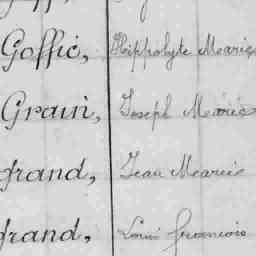 Goffic, Hippolyte Marie
Grain, Joseph Marie
grand, Jean Marie
grand, Louis François